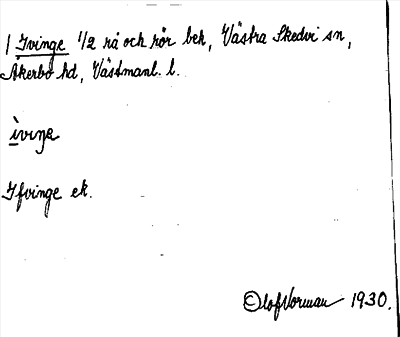 1 Ivinge 1/2 rå och rör bek, Västra Skedvi sn,
Åkerbo hd, Västmanl. l.
ìviŋe
Ifvinge ek.
Olof Norman 1930.